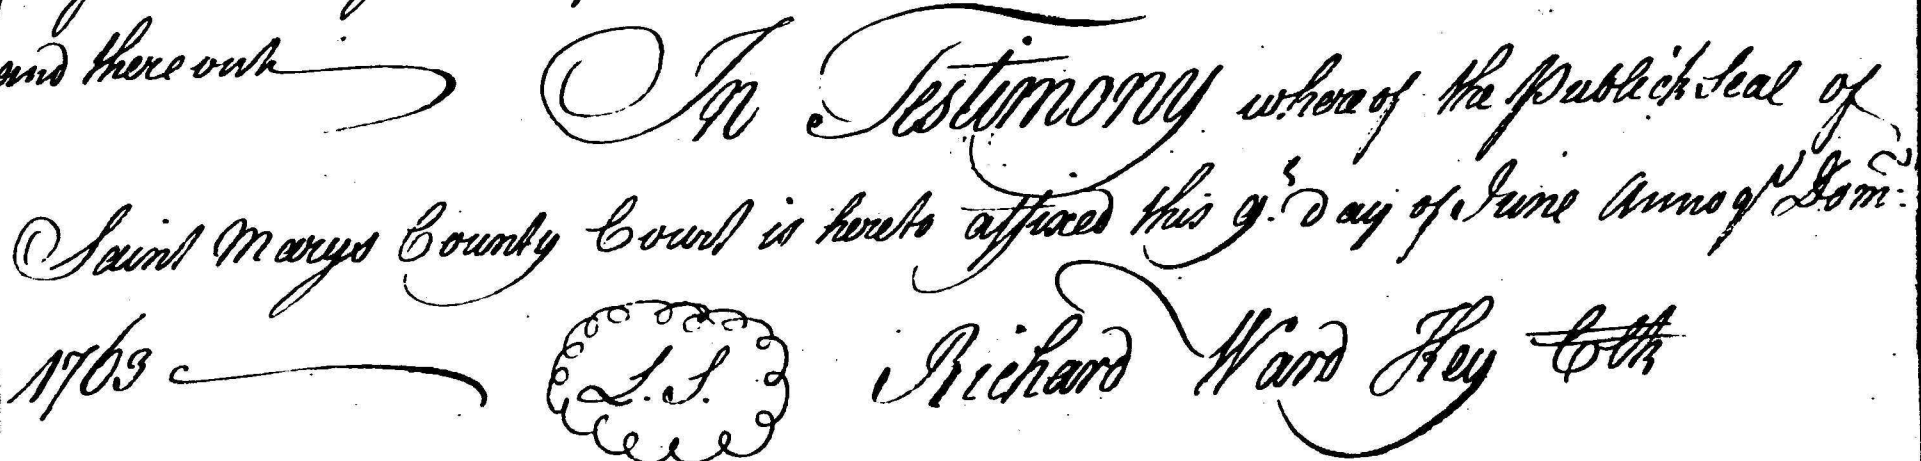 and thereout In Testimony whereof the Publick Seal of
Saint Marys County Court is hereto affixed this 9th Day of June Annoq Dom:
1763 L.S. Richard Ward Key Clk